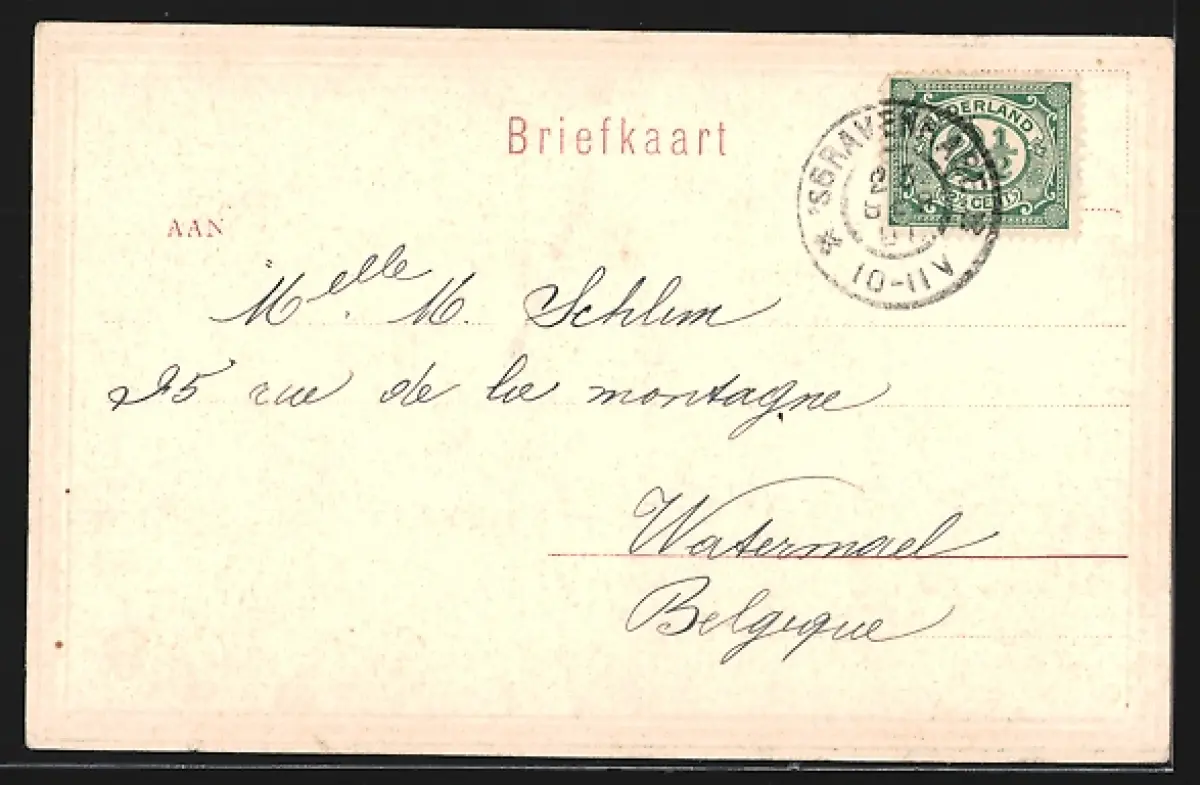 Briefkaart
NEDERLAND
2½ CENT.
'SGRAVENHAGE
10-11V
AAN
Melle. M. Schlim
25 rue de la montagne
Watermael
Belgique